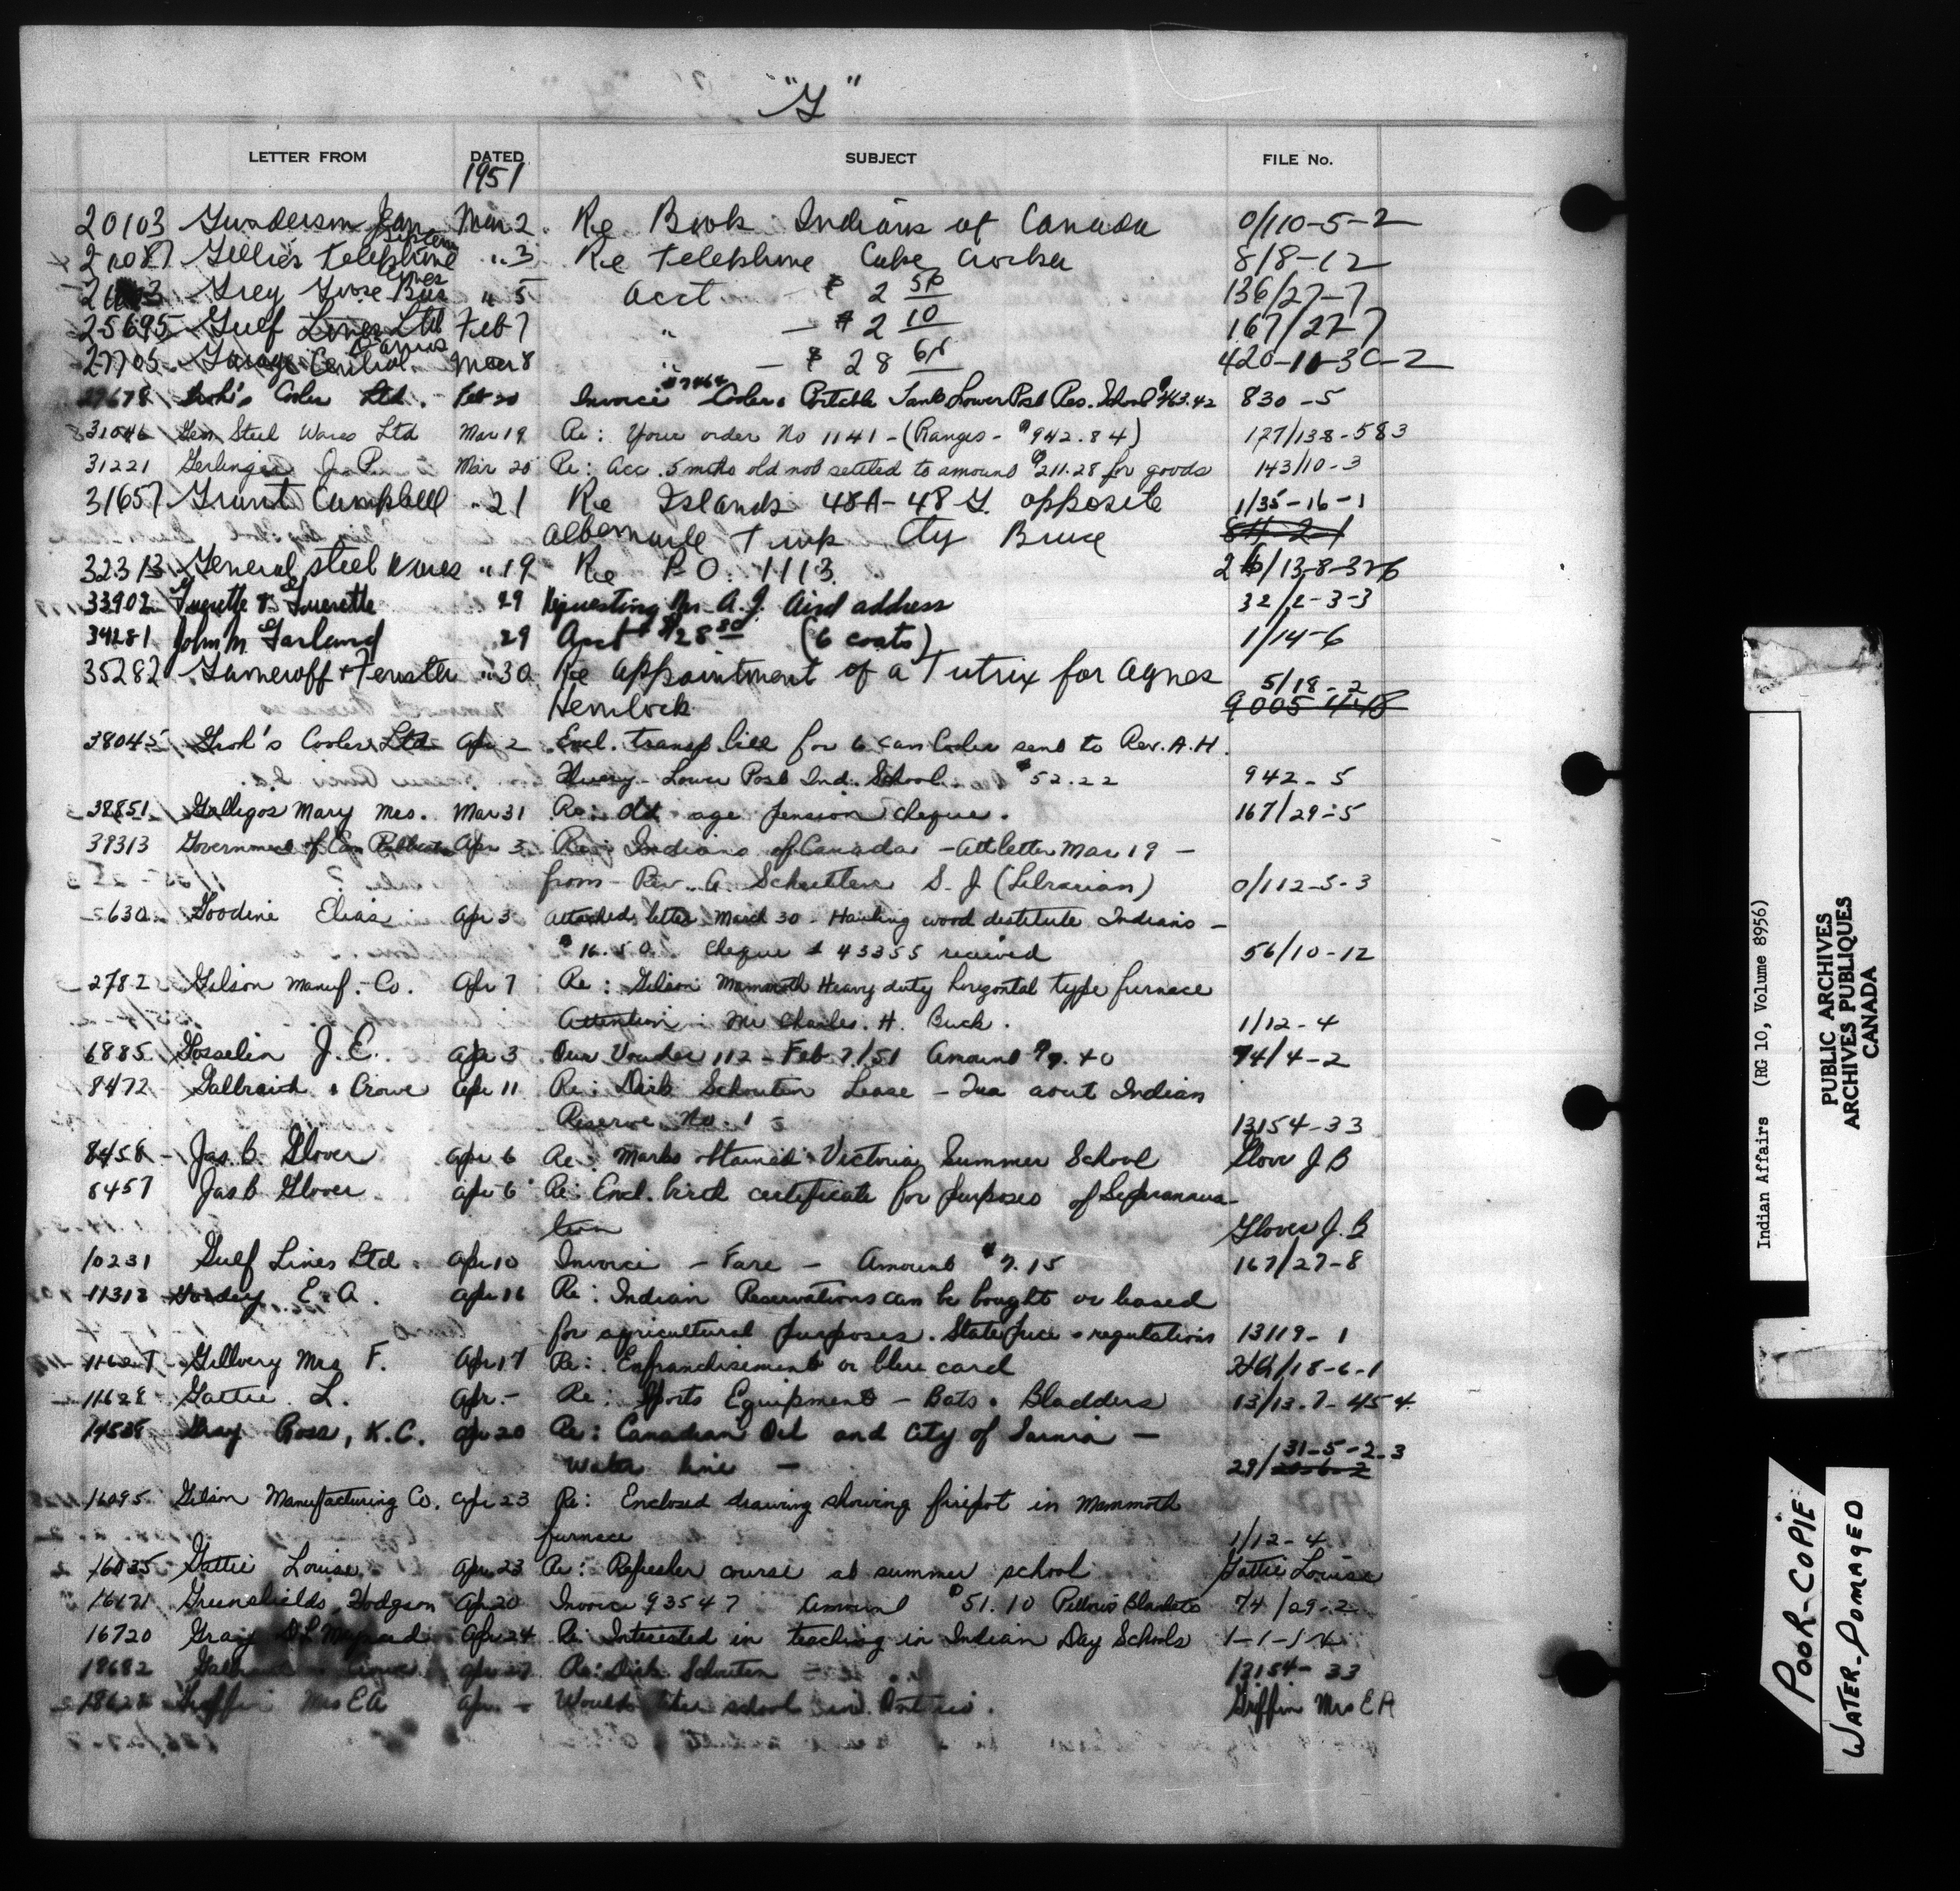 "G"
LETTER FROM DATED SUBJECT FILE No.
1951
20103 Gunderson Jean Mar 2 Re Book Indians of Canada 0/110-5-2
Gillies Telephone System " 3 Re Telephone Cape Croker 8/8-12
Grey Goose Bus Lines " 5 Acct - $ 2 50 136/27-7
25695 Gulf Lines Ltd Feb 7 " - $ 2 10 167/27-7
27705 Garage Central Mar 8 " - $ 28 420-11-3C-2
27678 Groh's Cooler Ltd. Feb 20 Invoice Cooler & Portable Tank Lower Post Res. School $463.42 830-5
31046 Gen Steel Wares Ltd Mar 19 Re: Your order No 1141 - (Ranges - $942.84) 177/138-583
31221 Gerlinger J. P. Mar 20 Re: Acc. 5 mths old not settled to amount $211.28 for goods 143/10-3
31657 Grant Campbell " 21 Re Islands 48A - 48 G. opposite 1/35-16-1
Albemarle Twp Cty Bruce
32313 General Steel Wares " 19 Re P.O. 1113.
33902 Guerette & Guerette 29 Requesting Mr. A.J. Aird address 32/2-3-3
34281 John M Garland 29 Acct $128 80 (6 coats) 1/14-6
35282 Gameroff + Fenster " 30 Re Appointment of a Tutrix for Agnes 5/18-2
Hemlock
38045 Groh's Cooler Ltd Apr 2 Encl. transp bill for 6 can Cooler sent to Rev. A. H.
Fleury - Lower Post Ind. School $52.22 942-5
38851 Gallegos Mary Mrs. Mar 31 Re: Old age pension cheque. 167/29-5
39313 Government of Can Apr 3 Re: Indians of Canada - Att letter Mar 19 -
from - Rev. A. S. J. (Librarian) 0/112-5-3
630 Goodine Elias Apr 3 Attached letter March 30 - Hauling wood destitute Indians -
$16.50. Cheque # 43355 received 56/10-12
2782 Gilson Manuf. Co. Apr 7 Re: Gilson Mammoth Heavy duty horizontal type furnace
Attention - Mr Charles. H. Buck. 1/12-4
6885 Gosselin J. E. Apr 3 Our Voucher 112 - Feb 7/51 Amount $9.40 74/4-2
8472 Galbraith & Crowe Apr 11 Re: Dirk Schouten Lease - Indian
Reserve No. 1 13154-33
8458 - Jas. B. Glover Apr 6 Re: Marks obtained Victoria Summer School Glover J B
8457 Jas B Glover Apr 6 Re: Encl. birth certificate for purposes of Superannua-
tion Glover J. B
10231 Gulf Lines Ltd. Apr 10 Invoice - Fare - Amount $7.15 167/27-8
11312 E. A. Apr 16 Re: Indian Reservations can be bought or leased
for agricultural purposes. State price & regulations 13119-1
Mrs F. Apr 17 Re: Enfranchisement or blue card
11628 Gattie L. Apr. - Re: Sports Equipment - Bats & Bladders 13/13-7-454
14538 Gray Ross, K.C. Apr 20 Re: Canadian Oil and City of Sarnia - 31-5-2-3
Water line - 29/
16095 Gilson Manufacturing Co. Apr 23 Re: Enclosed drawing showing firepot in Mammoth
furnace 1/12-4
16035 Gattie Louise Apr 23 Re: Refresher course at summer school Gattie Louise
16171 Greenshields Hodgson Apr 20 Invoice 93547 Amount $51.10 Pillows Blankets 74/29-2
16720 Apr 24 Re: Interested in teaching in Indian Day Schools
18682 Galbraith & Crowe Apr 27 Re: Dirk Schouten 13154-33
Griffin Mrs E A Apr - Would like school in Ontario. Griffin Mrs E A
Indian Affairs (RG 10, Volume 8956)
PUBLIC ARCHIVES
ARCHIVES PUBLIQUES
CANADA
POOR-COPIE
WATER-DOMAGED